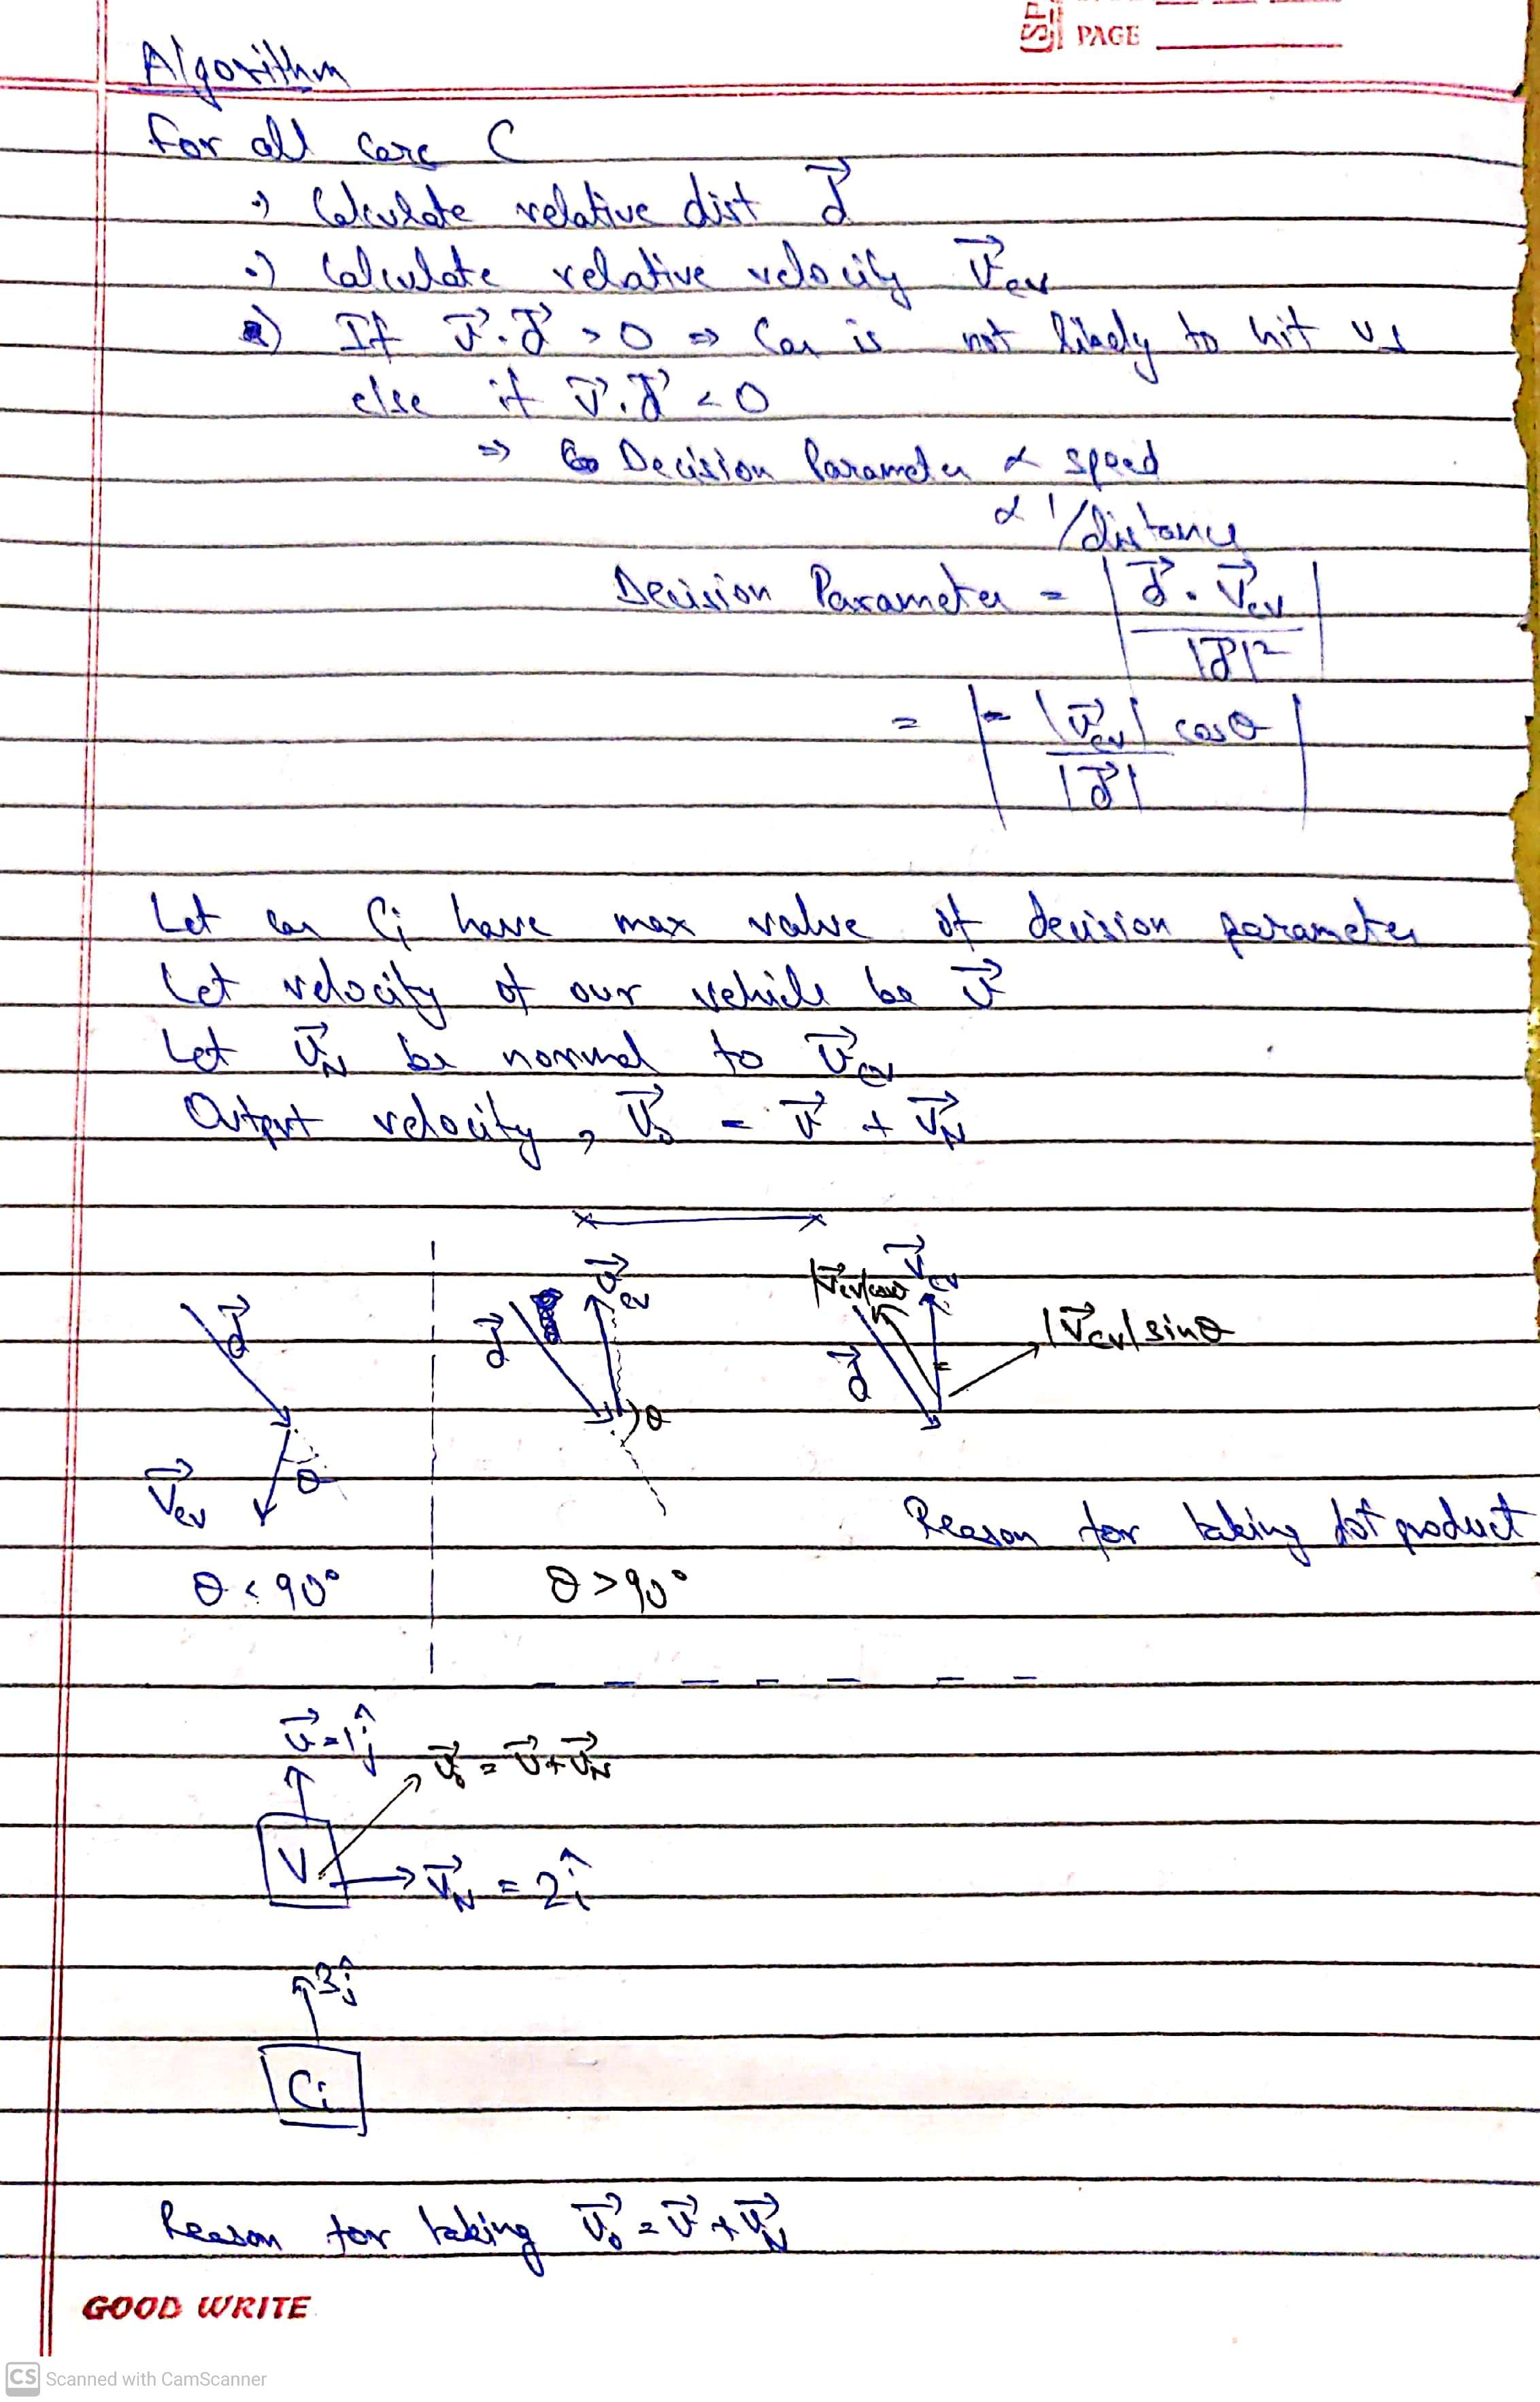 PAGE
Algorithm
For all cars C
•) Calculate relative dist d⃗
•) Calculate relative velocity v⃗cv
•) If v⃗.d⃗ > 0 ⇒ Car is not likely to hit us
else if v⃗.d⃗ < 0
⇒ Decision Parameter ∝ speed
∝ 1/distance
Decision Parameter = | d⃗ . v⃗cv / |d⃗|² |
= | - |v⃗cv| cosθ / |d⃗| |
Let car Ci have max value of decision parameter
Let velocity of our vehicle be v⃗
Let v⃗N be normal to v⃗cv
Output velocity, v⃗o = v⃗ + v⃗N
d⃗ d⃗ v⃗cv |v⃗cv|cosθ v⃗cv d⃗ |v⃗cv| sinθ
v⃗cv θ θ
Reason for taking dot product
θ < 90° θ > 90°
v⃗ = 1ĵ
v⃗o = v⃗ + v⃗N
V v⃗N = 2î
3ĵ
Ci
Reason for taking v⃗o = v⃗ + v⃗N
GOOD WRITE
CS Scanned with CamScanner